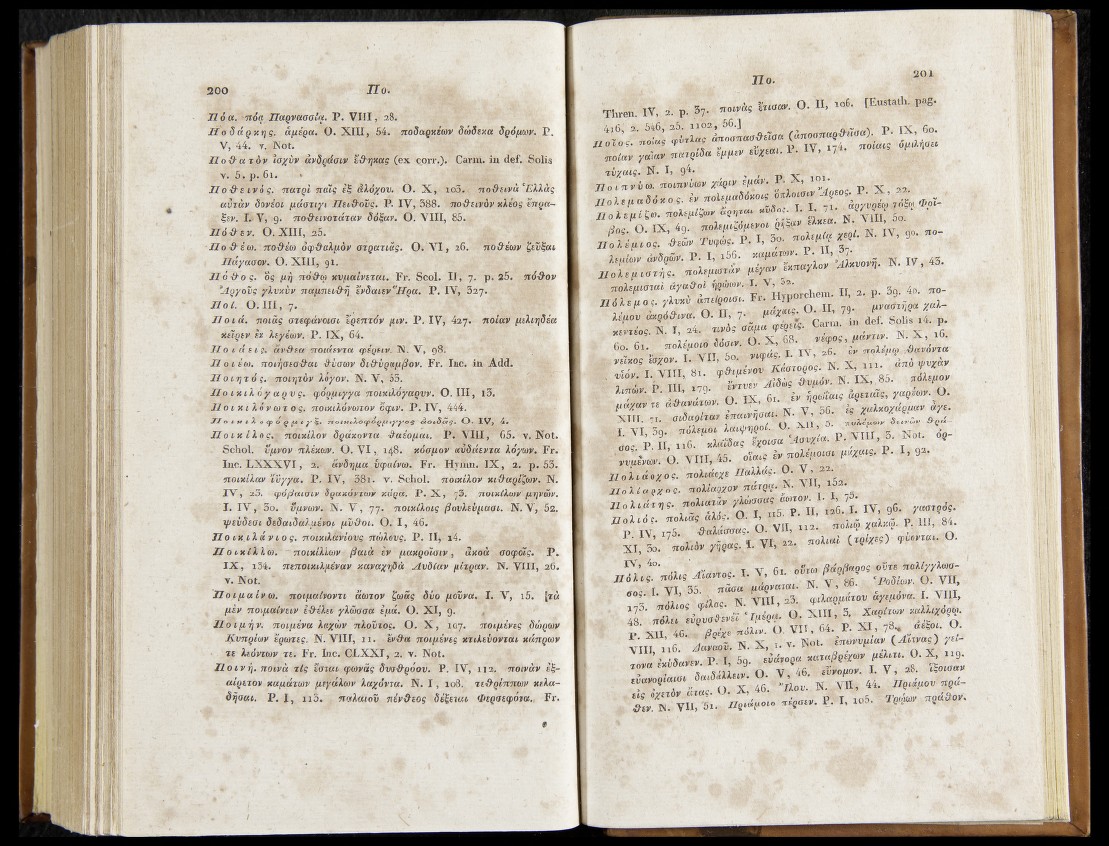 200 Πο.
Πόα. πόᾳ Παρνασσίᾳ. P. VIII, 28.
Ποδάρκης. ἁμέρα. O. XIII, 54. ποδαρκέων δώδεκα δρόμων. P.
V, 44. v. Not.
Ποθατὸν ἰσχὺν ἀνδράσιν ἔθηκας (ex corr.). Carm. in def. Solis
v. 5. p. 61.
Ποθεινός. πατρὶ παῖς ἐξ ἀλόχου. O. X, 103. ποθεινὰ Ἑλλὰς
αὐτὰν δονέοι μάστιγι Πειθοῦς. P. IV, 388. ποθεινὸν κλέος ἔπρα-
ξεν. I. V, 9. ποθεινοτάταν δόξαν. O. VIII, 85.
Πόθεν. O. XIII, 25.
Ποθέω. ποθέω ὀφθαλμὸν στρατιᾶς. O. VI, 26. ποθέων ζεῦξαι
Πάγασον. O. XIII, 91.
Πόθος. ὃς μὴ πόθῳ κυμαίνεται. Fr. Scol. II, 7. p. 25. πόθον
Ἀργοῦς γλυκὺν παμπειθῆ ἔνδαιεν Ἥρα. P. IV, 327.
Ποῖ. O. III, 7.
Ποιά. ποιᾶς στεφάνοισι ἔρεπτόν μιν. P. IV, 427. ποίαν μελιηδέα
κεῖρεν ἐκ λεγέων. P. IX, 64.
Ποιάεις. ἄνθεα ποιάεντα φέρειν. N. V, 98.
Ποιέω. ποιήσεσθαι θύσων διθύραμβον. Fr. Inc. in Add.
Ποιητός. ποιητὸν λόγον. N. V, 53.
Ποικιλόγαρυς. φόρμιγγα ποικιλόγαρυν. O. III, 13.
Ποικιλόνωτος, ποικιλόνωτον ὄφιν. P. IV, 444.
Ποικιλοφόρμιγξ. ποικιλοφόρμιγγος ἀοιδᾶς. O. IV, 4.
Ποικίλος. ποικίλον δράκοντα θαέομαι. P. VIII, 65. v. Not.
Schol. ὕμνον πλέκων. O. VI, 148. κόσμον αὐδάεντα λόγων. Fr.
Inc. LXXXVI, 2. ἄνδημα ὑφαίνω. Fr. Hymn. IX, 2. p. 53.
ποικίλαν ἴϋγγα. P. IV, 381. v. Schol. ποικίλον κιθαρίζων. N.
IV, 23. φόβαισιν δρακόντων κάρα. P. X, 73. ποικίλων μηνῶν.
I. IV, 30. ὕμνων. N. V, 77. ποικίλοις βουλεύμασι. N. V, 52.
ψεύδεσι δεδαιδαλμένοι μῦθοι. O. I, 46.
Ποικιλάνιος. ποικιλάνίους πώλους. P. II, 14.
Ποικίλλω. ποικίλλων βαιὰ ἐν μακροῖσιν, ἀκοὰ σοφοῖς. P.
IX, 134. πεποικιλμέναν καναχηδὰ Λυδίαν μίτραν. N. VIII, 26.
v. Not.
Ποιμαίνω. ποιμαίνοντι ἄωτον ζωᾶς δύο μοῦνα. I. V, 15. [τὰ
μὲν ποιμαίνειν ἐθέλει γλῶσσα ἐμά. O. XI, 9.
Ποιμήν. ποιμένα λαχὼν πλοῦτος. O. X, 107. ποιμένες δώρων
Κυπρίων ἔρωτες. N. VIII, 11. ἔνθα ποιμένες κτιλεύονται κάπρων
τε λεόντων τε. Fr. Inc. CLXXI, 2. v. Not.
Ποινή. ποινὰ τίς ἔσται φωνᾶς δυσθρόου. P. IV, 112. ποινὰν ἐξ-
αίρετον καμάτων μεγάλων λαχόντα. N. I, 108. τεθρίππων κελα-
δῆσαι. P. I, 113. παλαιοῦ πένθεος δέξεται Φερσεφόνα. Fr.
Πο. 201
Thren. IV, 2. p. 37. ποινὰς ἔτισαν. O. II, 106. [Eustath. pag.
416, 2. 546, 25. 1102, 56.]
Ποῖος. ποίας φύτλας ἀποσπασθεῖσα (ἀποσπαρθεῖσα). P. IX, 60.
ποίαν γαῖαν πατρίδα ἔμμεν εὔχεαι. P. IV, 174. ποίαις ὁμιλήσει
τύχαις. N. I, 94.
Ποιπνύω. ποιπνύων χάριν ἐμάν. P. X, 101.
Πολεμαδόκος. ἐν πολεμαδόκοις ὅπλοισιν Ἄρεος. P. X, 22.
Πολεμίζω. πολεμίζων ἄρηται κῦδος. I. I, 71. ἀργυρέῳ τόξῳ Φοῖ-
βος. O. IX, 49. πολεμιζόμενοι ῥῆξαν ἕλκεα. N. VIII, 50.
Πολέμιος. θεῶν Τυφώς. P. I, 30. πολεμίᾳ χερί. N. IV, 90. πο-
λεμίων ἀνδρῶν. P. I, 156. καμάτων. P. II, 37.
Πολεμιστής. πολεμιστὰν μέγαν ἔκπαγλον Ἀλκυονῆ. N. IV, 43.
πολεμισταὶ ἀγαθοὶ ἡρώων. I. V, 32.
Πόλεμος. γλυκὺ ἀπείροισι. Fr. Hyporchem. II, 2. p. 39. 40. πο-
λέμου ἀκρόθινα. O. II, 7. μάχαις. O. II, 79. μναστῆρα χαλ-
κεντέος. N. I, 24. τινὸς σᾶμα φέρεις. Carm. in def. Solis 14. p.
60. 61. πολέμοιο δόσιν. O. X, 68. νέφος, μάντιν. N. X, 16.
νεῖκος ἔσχον. I. VII, 50. νιφάς. I. IV, 26. ἐν πολέμῳ θανόντα
υἱόν. I. VIII, 81. φθιμένου Κάστορος. N. X, 111. ἀπὸ ψυχὰν
λιπών. P. III, 179. ἔντυεν Αἰδὼς θυμόν. N. IX, 85. πόλεμον
μάχαν τε ἀθανάτων. O. IX, 61. ἐν ἡρωίαις ἀρεταῖς, γαρύων. O.
XIII, 71. σιδαρίταν ἐπαινῆσαι. N. V, 36. ἐς χαλκοχάρμαν ἄγε.
I. VI, 39. πόλεμοι λαιψηροί. O. XII, 5. πολέμων δεινῶν θρά-
σος. P. II, 116. κλαΐδας ἔχοισα Ἀσυχία. P. VIII, 3. Not. ὀρ-
νυμένων. O. VIII, 45. οἵαις ἐν πολέμοισι μάχαις. P. I, 92.
Πολιάοχος. πολιάοχε Παλλάς. O. V, 22.
Πολίαρχος. πολίαρχον πάτρᾳ. N. VII, 152.
Πολιάτης. πολιατᾶν γλώσσας ἄωτον. I. I, 75.
Πολιός. πολιᾶς ἁλός. O. I, 115. P. II, 126. I. IV, 96. γαστρός.
P. IV, 175. θαλάσσας. O. VII, 112. πολιῷ χαλκῷ. P. III, 84.
XI, 30. πολιὸν γῆρας. I. VI, 22. πολιαὶ (τρίχες) φύονται. O.
IV, 40.
Πόλις. πόλις Αἴαντος. I. V, 61. οὕτω βάρβαρος οὔτε πολίγγλωσ-
σος. I. VI, 35. πᾶσα μάρναται. N. V, 86. Ῥοδίων. O. VII,
173. πόλιος φίλος. N. VIII, 23. φιλαρμάτου ἁγεμόνα. I. VIII,
48. πόλει εὐρυσθενεῖ Ἱμέρᾳ. O. XIII, 3. Χαρίτων καλλιχόρῳ.
P. XII, 46. βρέχε πόλιν. O. VII, 64. P. XI, 78. ἀέξοι. O.
VIII, 116. Δαναοῦ. N. X, 1. v. Not. ἐπώνυμίαν (Αἴτνας) γεί-
τονα ἐκύδανεν. P. I, 59. εὐάνορα καταβρέχων μέλιτι. O. X, 119.
εὐανορίαισι δαιδάλλειν. O. V, 46. εὔνομον. I. V, 28. ἵζοισαν
εἰς ὀχετὸν ἄτας. O. X, 46. Ἴλου. N. VII, 44. Πριάμου πρά-
θεν. N. VII, 51. Πριάμοιο πέρσεν. P. I, 105. Τρῴων πράθον.